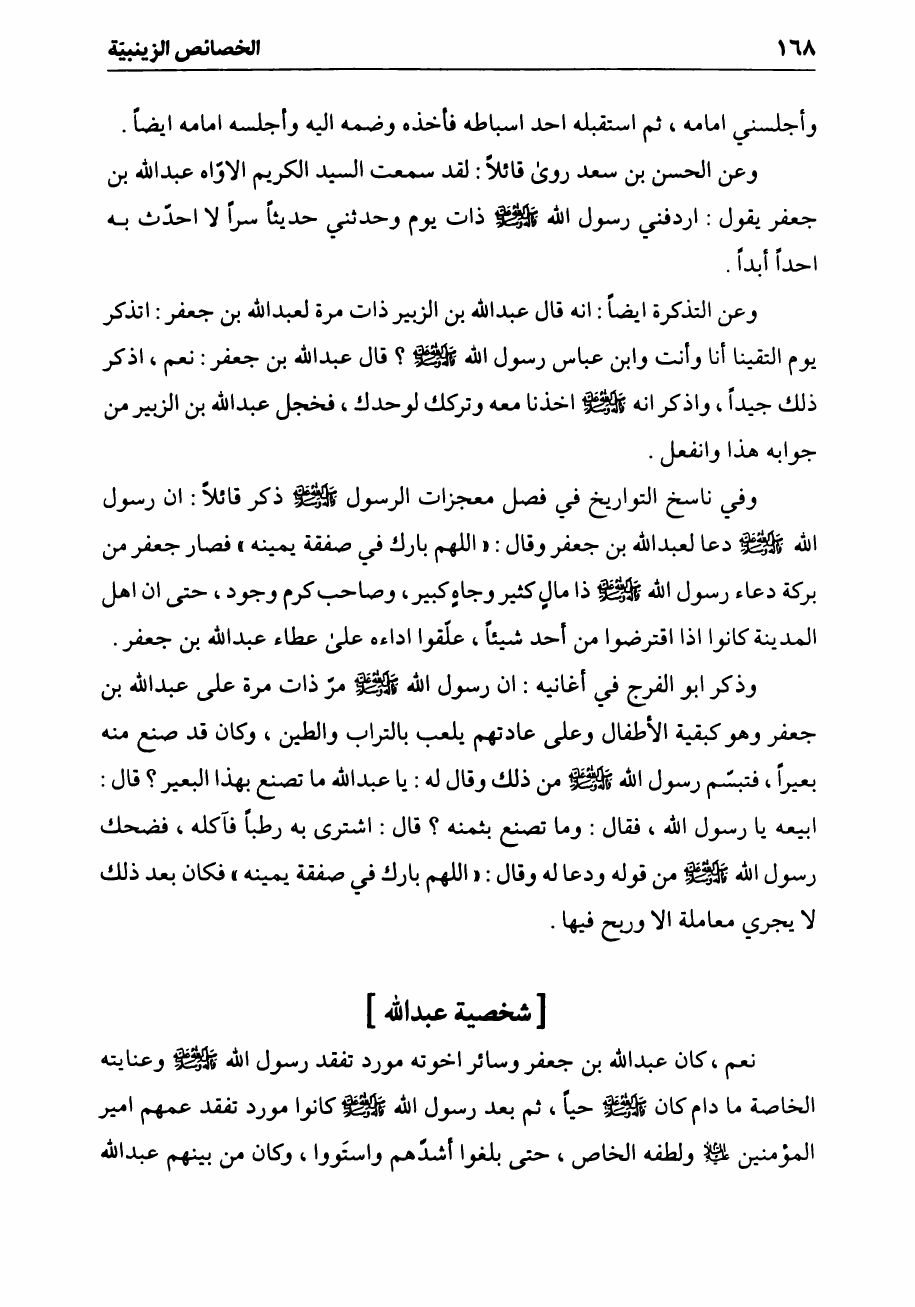 ١٦٨ الخصائص الزينبيّة
وأجلسني امامه ، ثم استقبله احد اسباطه فأخذه وضمه اليه وأجلسه امامه ايضاً .
وعن الحسن بن سعد روىٰ قائلاً : لقد سمعت السيد الكريم الاوّاه عبدالله بن
جعفر يقول : اردفني رسول الله ﷺ ذات يوم وحدثني حديثاً سراً لا احدّث بـه
احداً أبداً .
وعن التذكرة ايضاً : انه قال عبدالله بن الزبير ذات مرة لعبدالله بن جعفر : اتذكر
يوم التقينا أنا وأنت وابن عباس رسول الله ﷺ ؟ قال عبدالله بن جعفر : نعم ، اذكر
ذلك جيداً ، واذكر انه ﷺ اخذنا معه وتركك لوحدك ، فخجل عبدالله بن الزبير من
جوابه هذا وانفعل .
وفي ناسخ التواريخ في فصل معجزات الرسول ﷺ ذكر قائلاً : ان رسول
الله ﷺ دعا لعبدالله بن جعفر وقال : « اللهم بارك في صفقة يمينه » فصار جعفر من
بركة دعاء رسول الله ﷺ ذا مالٍ كثير وجاهٍ كبير ، وصاحب كرم وجود ، حتى ان اهل
المدينة كانوا اذا اقترضوا من أحد شيئاً ، علّقوا اداءه علىٰ عطاء عبدالله بن جعفر .
وذكر ابو الفرج في أغانيه : ان رسول الله ﷺ مرّ ذات مرة على عبدالله بن
جعفر وهو كبقية الأطفال وعلى عادتهم يلعب بالتراب والطين ، وكان قد صنع منه
بعيراً ، فتبسّم رسول الله ﷺ من ذلك وقال له : يا عبدالله ما تصنع بهذا البعير ؟ قال :
ابيعه يا رسول الله ، فقال : وما تصنع بثمنه ؟ قال : اشترى به رطباً فآكله ، فضحك
رسول الله ﷺ من قوله ودعا له وقال : « اللهم بارك في صفقة يمينه » فكان بعد ذلك
لا يجري معاملة الا وربح فيها .
[ شخصية عبدالله ]
نعم ، كان عبدالله بن جعفر وسائر اخوته مورد تفقد رسول الله ﷺ وعنايته
الخاصة ما دام كان ﷺ حياً ، ثم بعد رسول الله ﷺ كانوا مورد تفقد عمهم امير
المؤمنين عليه السلام ولطفه الخاص ، حتى بلغوا أشدّهم واستَووا ، وكان من بينهم عبدالله